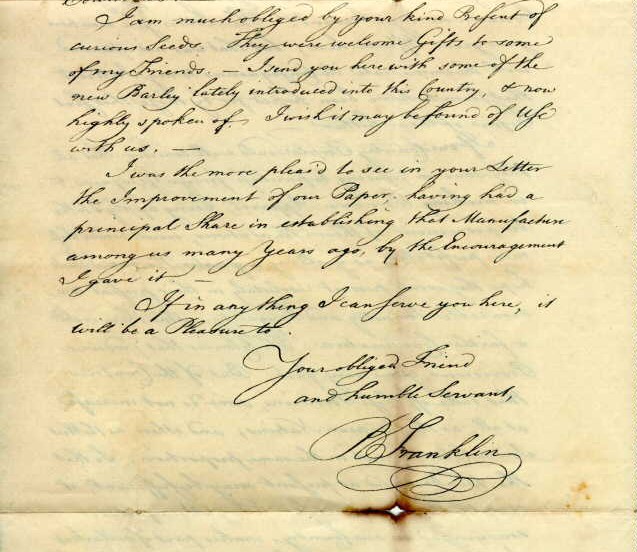 I am much obliged by your kind Present of
curious Seeds. They were welcome Gifts to some
of my Friends. — I send you herewith some of the
new Barley lately introduced into this Country, & now
highly spoken of. I wish it may be found of Use
with us. —
I was the more pleas'd to see in your Letter
the Improvement of our Paper, having had a
principal Share in establishing that Manufacture
among us many Years ago, by the Encouragement
I gave it —
If in any thing I can serve you here, it
will be a Pleasure to
Your obliged Friend
and humble Servant,
B Franklin